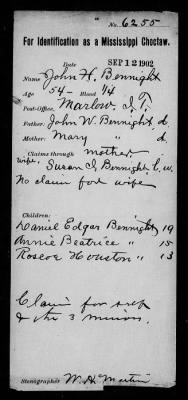 No. 6255
For Identification as a Mississippi Choctaw.
Date SEP 12 1902
Name John H. Bennight
Age 54 Blood 1/4
Post-Office, Marlow, I. T.
Father: John W. Bennight d
Mother: Mary " d
Claims through mother.
wife, Susan I. Bennight, i. w.
No claim for wife
Children:
Daniel Edgar Bennight 19
Annie Beatrice " 15
Roscoe Houston " 13
Claim for self
& the 3 minors.
Stenographer W. H. Martin